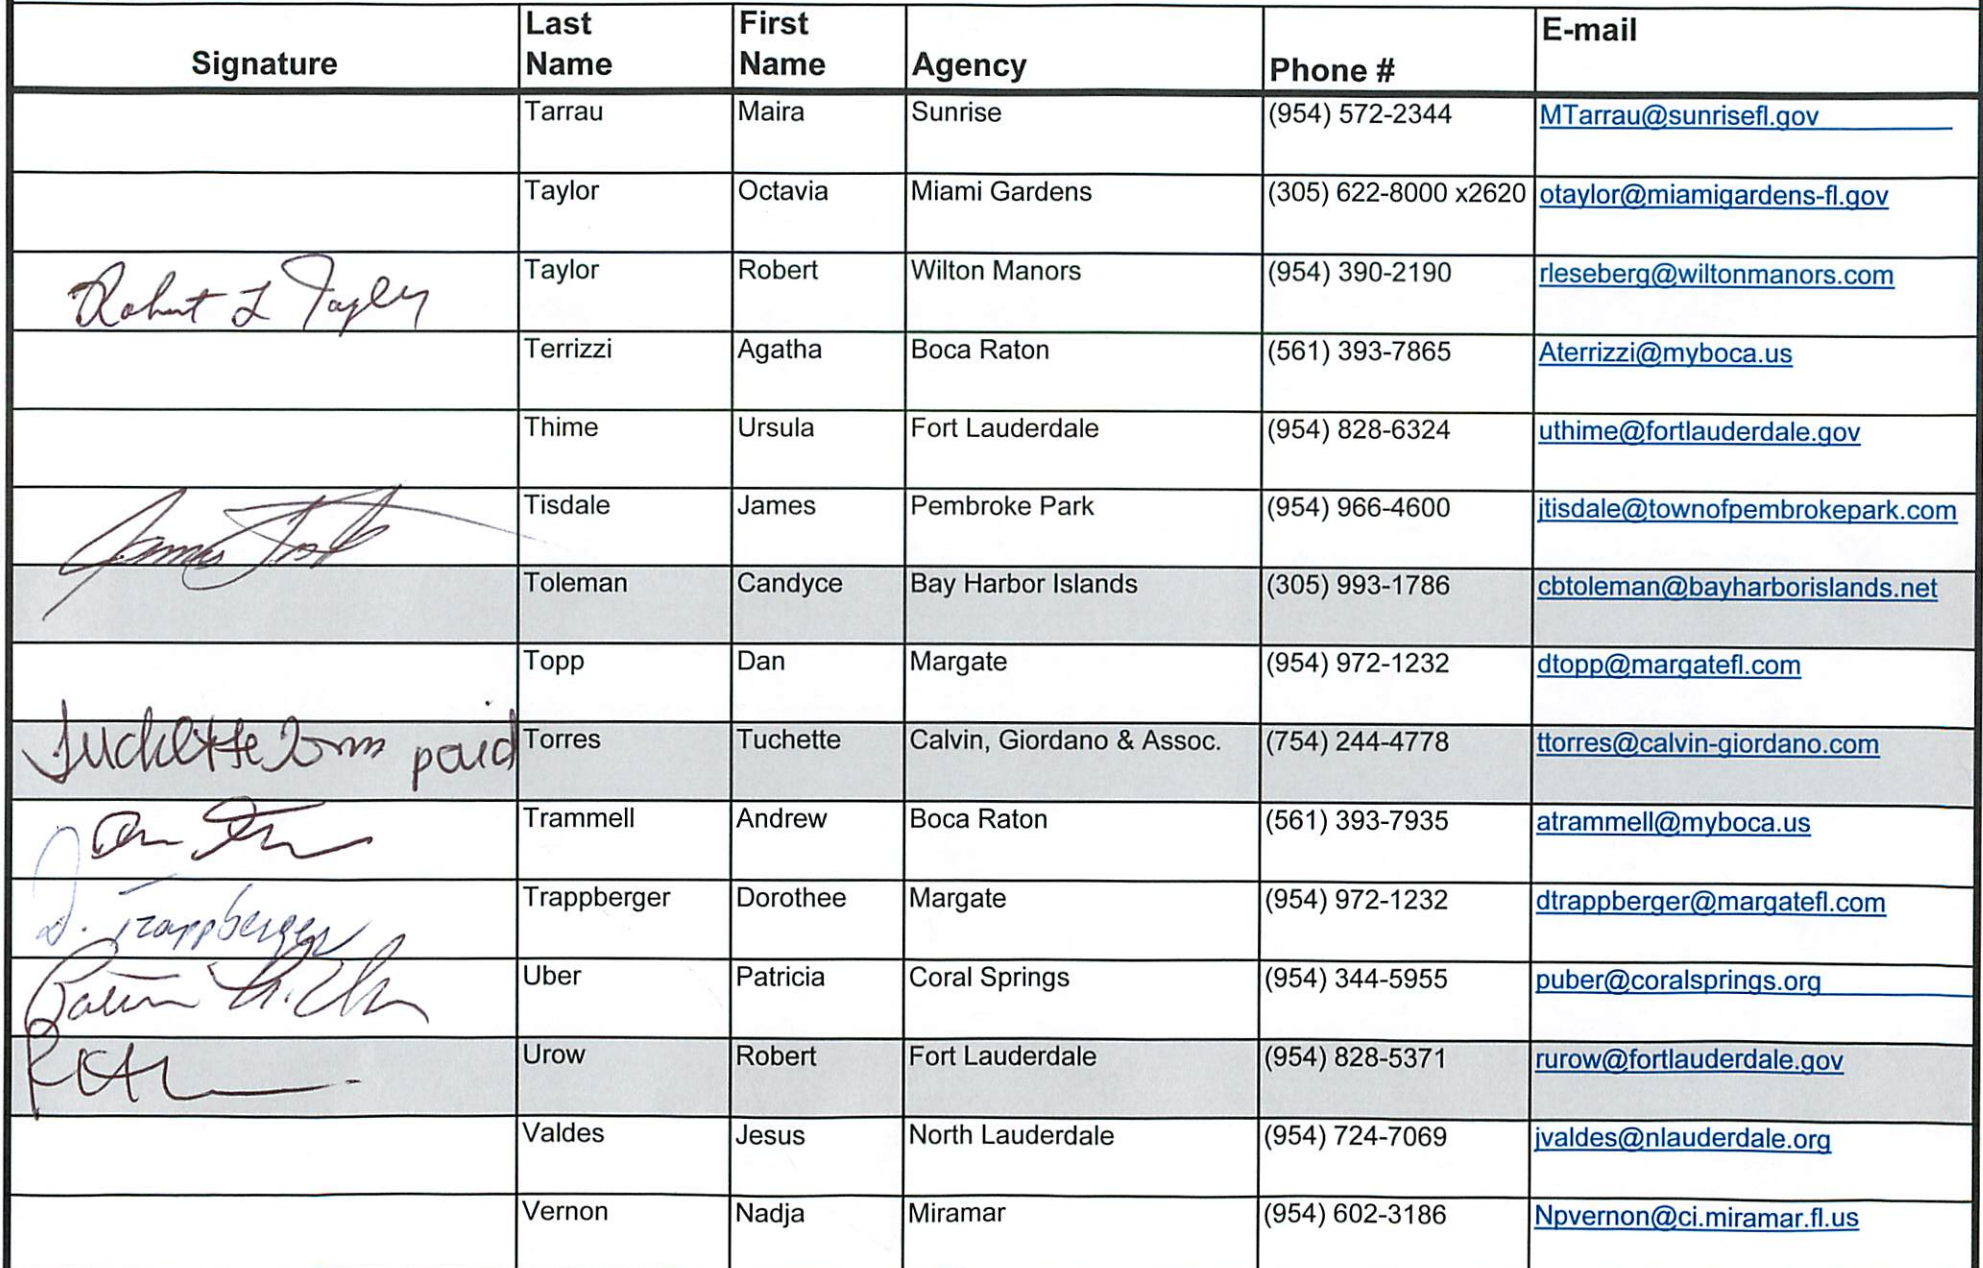 Signature Last Name First Name Agency Phone # E-mail
Tarrau Maira Sunrise (954) 572-2344 MTarrau@sunrisefl.gov
Taylor Octavia Miami Gardens (305) 622-8000 x2620 otaylor@miamigardens-fl.gov
Robert L Taylor Taylor Robert Wilton Manors (954) 390-2190 rleseberg@wiltonmanors.com
Terrizzi Agatha Boca Raton (561) 393-7865 Aterrizzi@myboca.us
Thime Ursula Fort Lauderdale (954) 828-6324 uthime@fortlauderdale.gov
James Tisdale James Pembroke Park (954) 966-4600 jtisdale@townofpembrokepark.com
Toleman Candyce Bay Harbor Islands (305) 993-1786 cbtoleman@bayharborislands.net
Topp Dan Margate (954) 972-1232 dtopp@margatefl.com
paid Torres Tuchette Calvin, Giordano & Assoc. (754) 244-4778 ttorres@calvin-giordano.com
Trammell Andrew Boca Raton (561) 393-7935 atrammell@myboca.us
D. Trappberger Trappberger Dorothee Margate (954) 972-1232 dtrappberger@margatefl.com
Uber Patricia Coral Springs (954) 344-5955 puber@coralsprings.org
Urow Robert Fort Lauderdale (954) 828-5371 rurow@fortlauderdale.gov
Valdes Jesus North Lauderdale (954) 724-7069 jvaldes@nlauderdale.org
Vernon Nadja Miramar (954) 602-3186 Npvernon@ci.miramar.fl.us